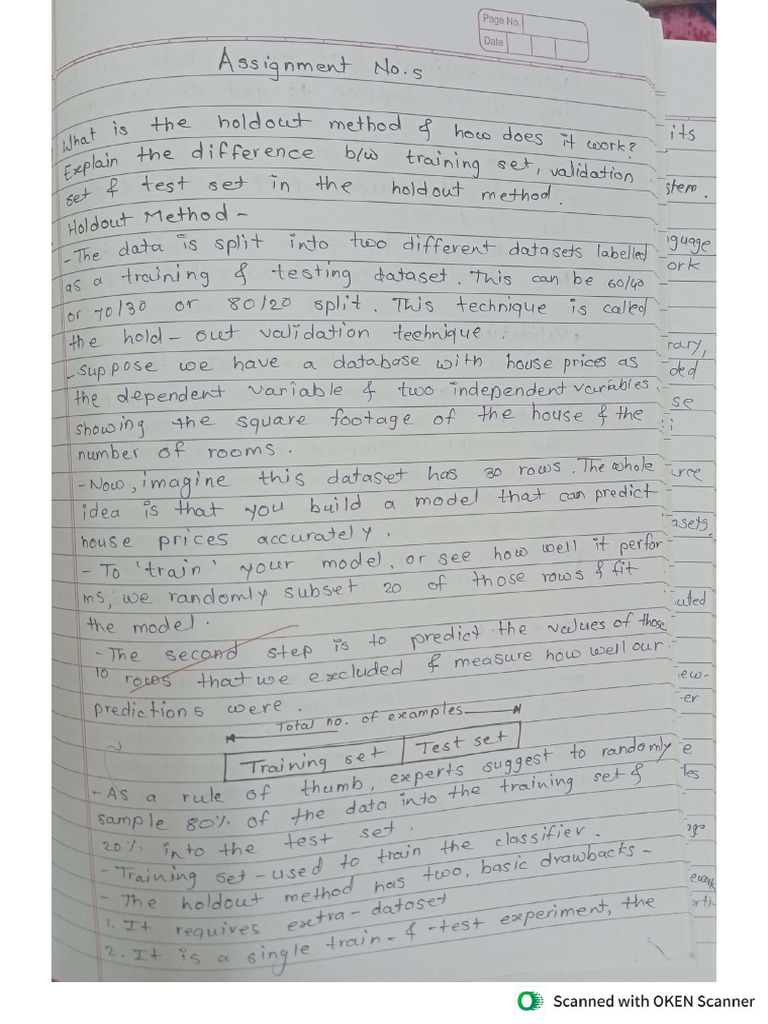 Page No.
Date
Assignment No.5
What is the holdout method & how does it work?
Explain the difference b/w training set, validation
set & test set in the holdout method.
Holdout Method -
- The data is split into two different datasets labelled
as a training & testing dataset. This can be 60/40
or 70/30 or 80/20 split. This technique is called
the hold-out validation technique.
- Suppose we have a database with house prices as
the dependent variable & two independent variables
showing the square footage of the house & the
number of rooms.
- Now, imagine this dataset has 30 rows. The whole
idea is that you build a model that can predict
house prices accurately.
- To 'train' your model, or see how well it perfor
ms, we randomly subset 20 of those rows & fit
the model.
- The second step is to predict the values of those
10 rows that we excluded & measure how well our
predictions were.
Total no. of examples
Training set Test set
- As a rule of thumb, experts suggest to randomly
sample 80% of the data into the training set &
20% into the test set.
- Training set - used to train the classifier.
- The holdout method has two, basic drawbacks -
1. It requires extra-dataset
2. It is a single train-&-test experiment, the
its
stem.
guage
ork
rary,
ded
se
urce
asets
uted
ew-
er
e
tes
ework
Scanned with OKEN Scanner